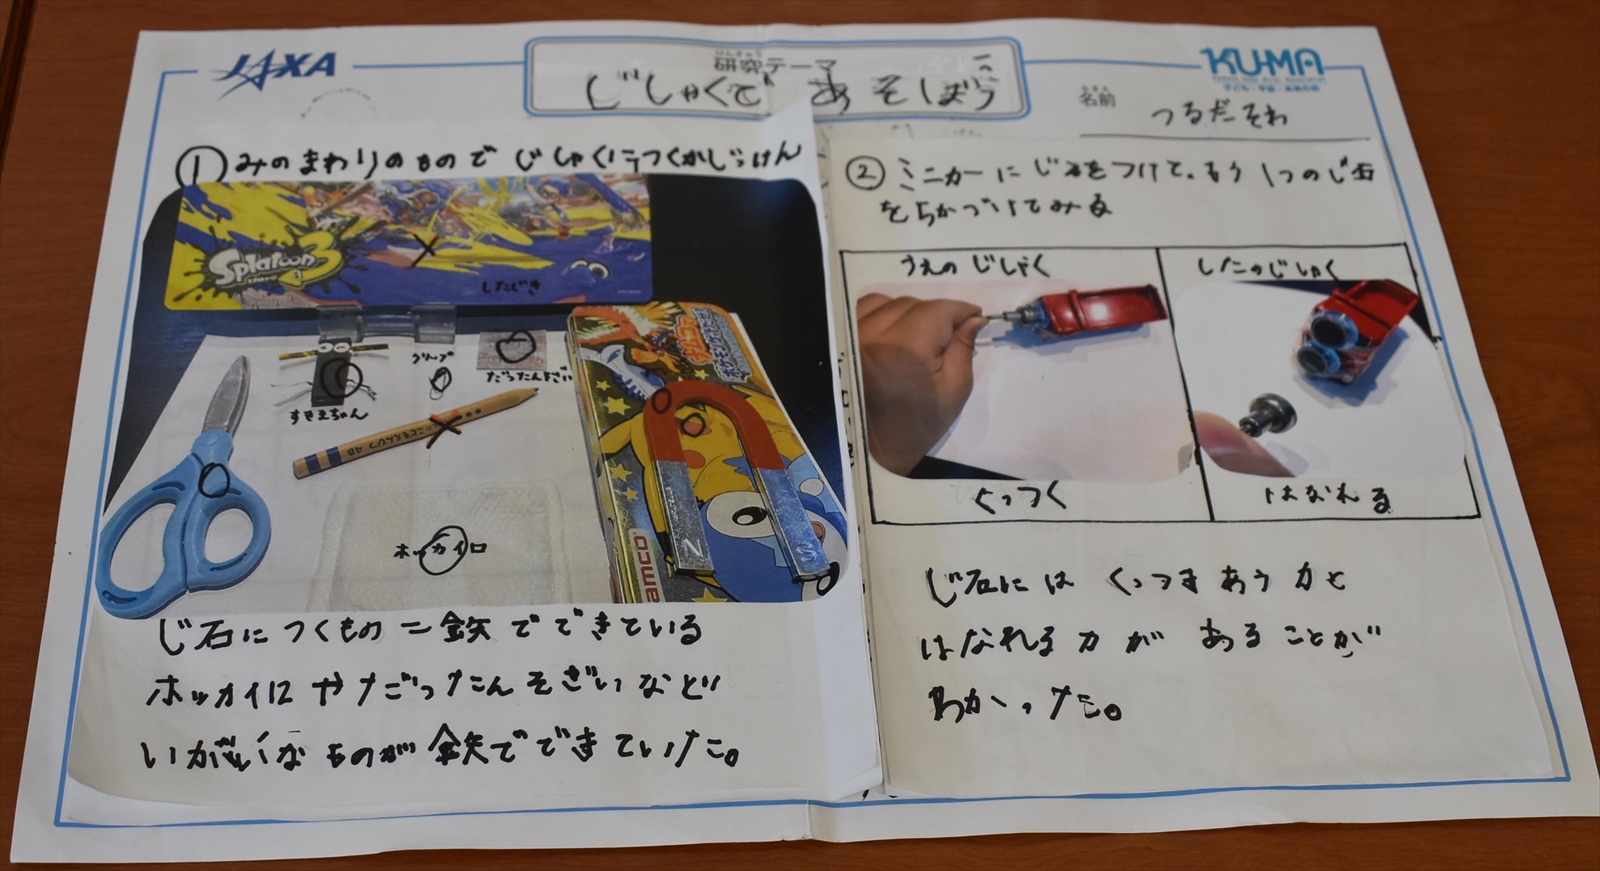 JAXA
けんきゅう
研究テーマ
じしゃくであそぼう
KU-MA
子ども・宇宙・未来の会
なまえ
名前
つるだそわ
① みのまわりのもので じしゃくにつくかじっけん
Splatoon 3
したじき
クリップ
だったんそざい
すきまちゃん
4B
ホッカイロ
N
S
namco
じ石につくもの=鉄でできている
ホッカイロやだったんそざいなど
いがいなものが鉄でできていた。
② ミニカーにじ石をつけて、もう1つのじ石
をちかづけてみる
うえのじしゃく
したのじしゃく
くっつく
はなれる
じ石にはくっつきあう力と
はなれる力があることが
わかった。